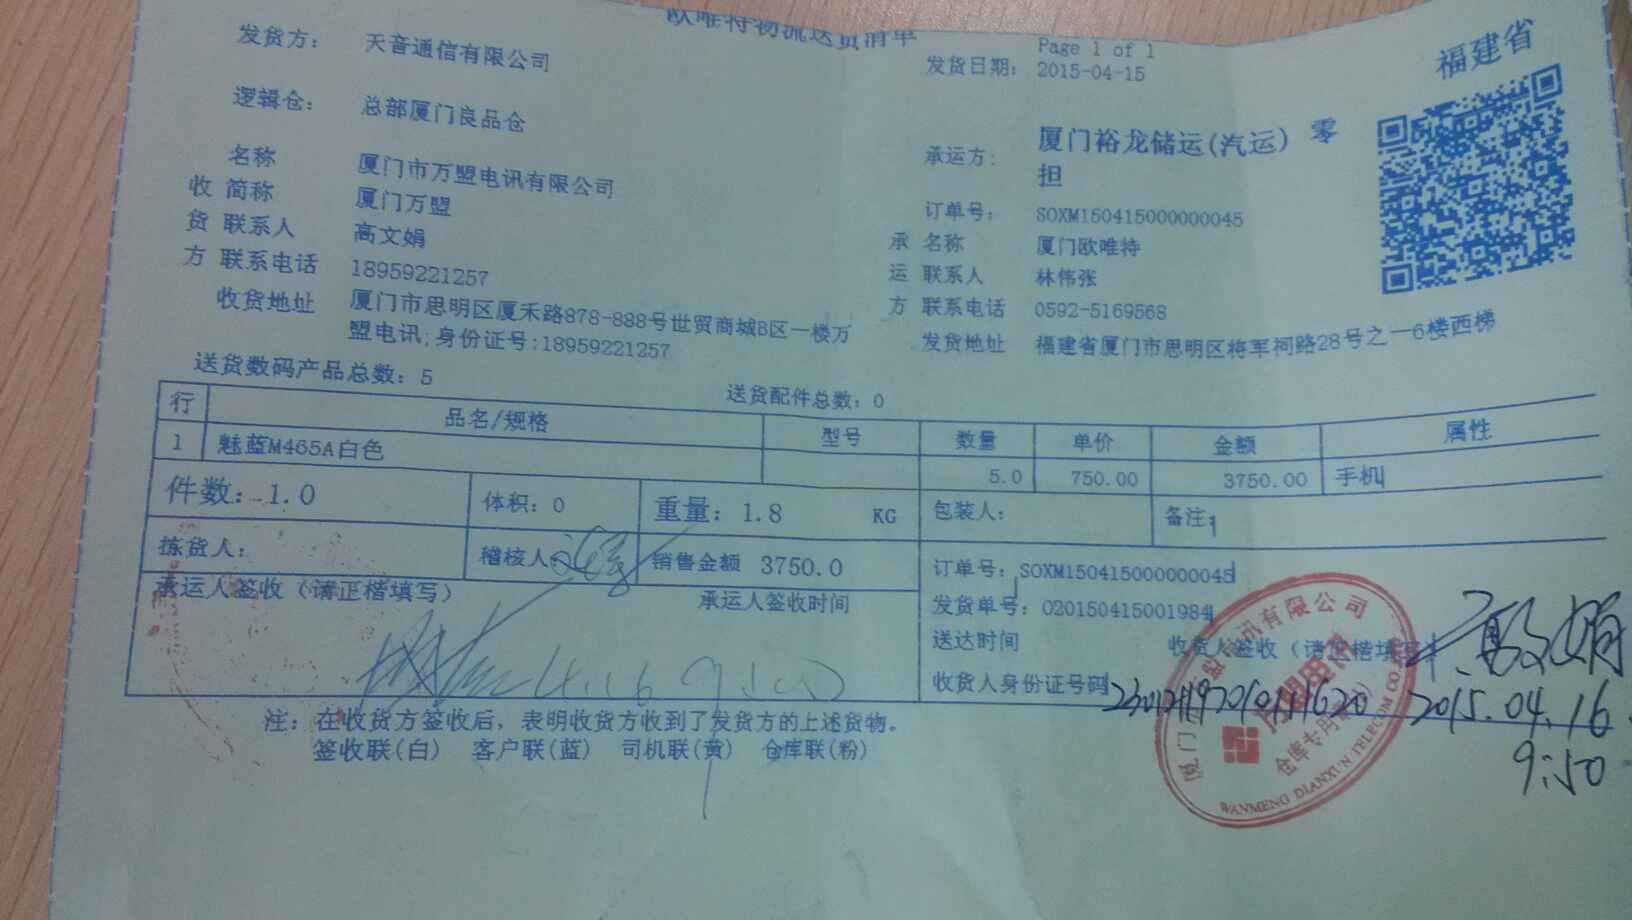 欧唯特物流送货清单
Page 1 of 1
福建省
发货方： 天音通信有限公司
发货日期： 2015-04-15
逻辑仓： 总部厦门良品仓
承运方： 厦门裕龙储运(汽运) 零担
收货方
名称 厦门市万盟电讯有限公司
简称 厦门万盟
联系人 高文娟
联系电话 18959221257
收货地址 厦门市思明区厦禾路878-888号世贸商城B区一楼万
盟电讯;身份证号:18959221257
订单号： SOXM150415000000045
承运方
名称 厦门欧唯特
联系人 林伟张
联系电话 0592-5169568
发货地址 福建省厦门市思明区将军祠路28号之一6楼西梯
送货数码产品总数：5 送货配件总数：0
行 品名/规格 型号 数量 单价 金额 属性
1 魅蓝M465A白色 5.0 750.00 3750.00 手机
件数：1.0 体积：0 重量：1.8 KG 包装人： 备注：
拣货人： 稽核人 销售金额 3750.0 订单号：SOXM150415000000045
承运人签收（请正楷填写） 承运人签收时间 发货单号：0201504150019844
4.16
送达时间 收货人签收（请正楷填写
收货人身份证号码 2015.04.16
9:50
注：在收货方签收后，表明收货方收到了发货方的上述货物。
签收联(白) 客户联(蓝) 司机联(黄) 仓库联(粉)
仓库专用
WANMENG DIANXUN TELECOM CO